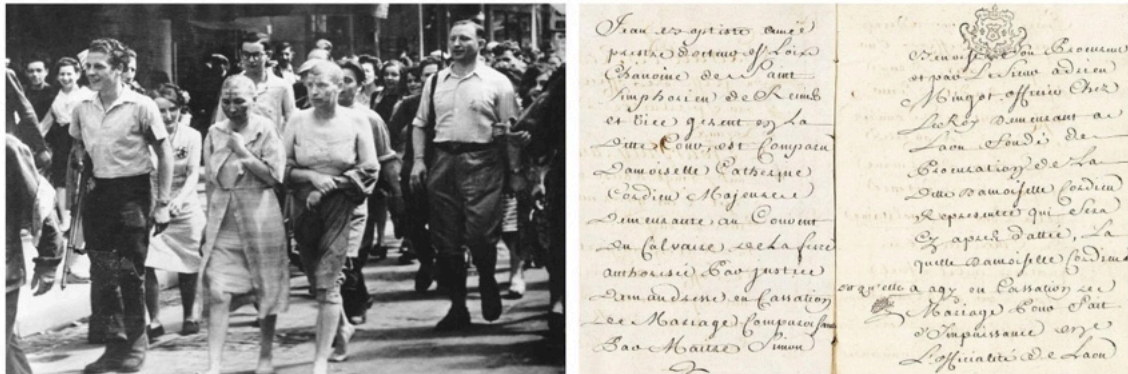 Jean Baptiste Aimé
prestre docteur es Loix
Chanoine de Saint
Simphorien de Reims
et Vice gerent en La
ditte Cour, est Comparu
Damoiselle Catherine
Cordieu Majeure
Demeurante au Couvent
du Calvaire de La fere
authorisée Par justice
Demandresse en Cassation
de Mariage Comparante
Par Maitre Simon
Procureur
et par Le Sieur adrien
Mingot officier Chez
Le Roy Demeurant a
Laon fondé de
Procuration de La
ditte Damoiselle Cordieu
Representée qui Sera
Cy apres dattée, La
quelle Damoiselle Cordieu
a agy en Cassation de
Mariage Pour Fait
d'Impuissance en
L'officialité de Laon